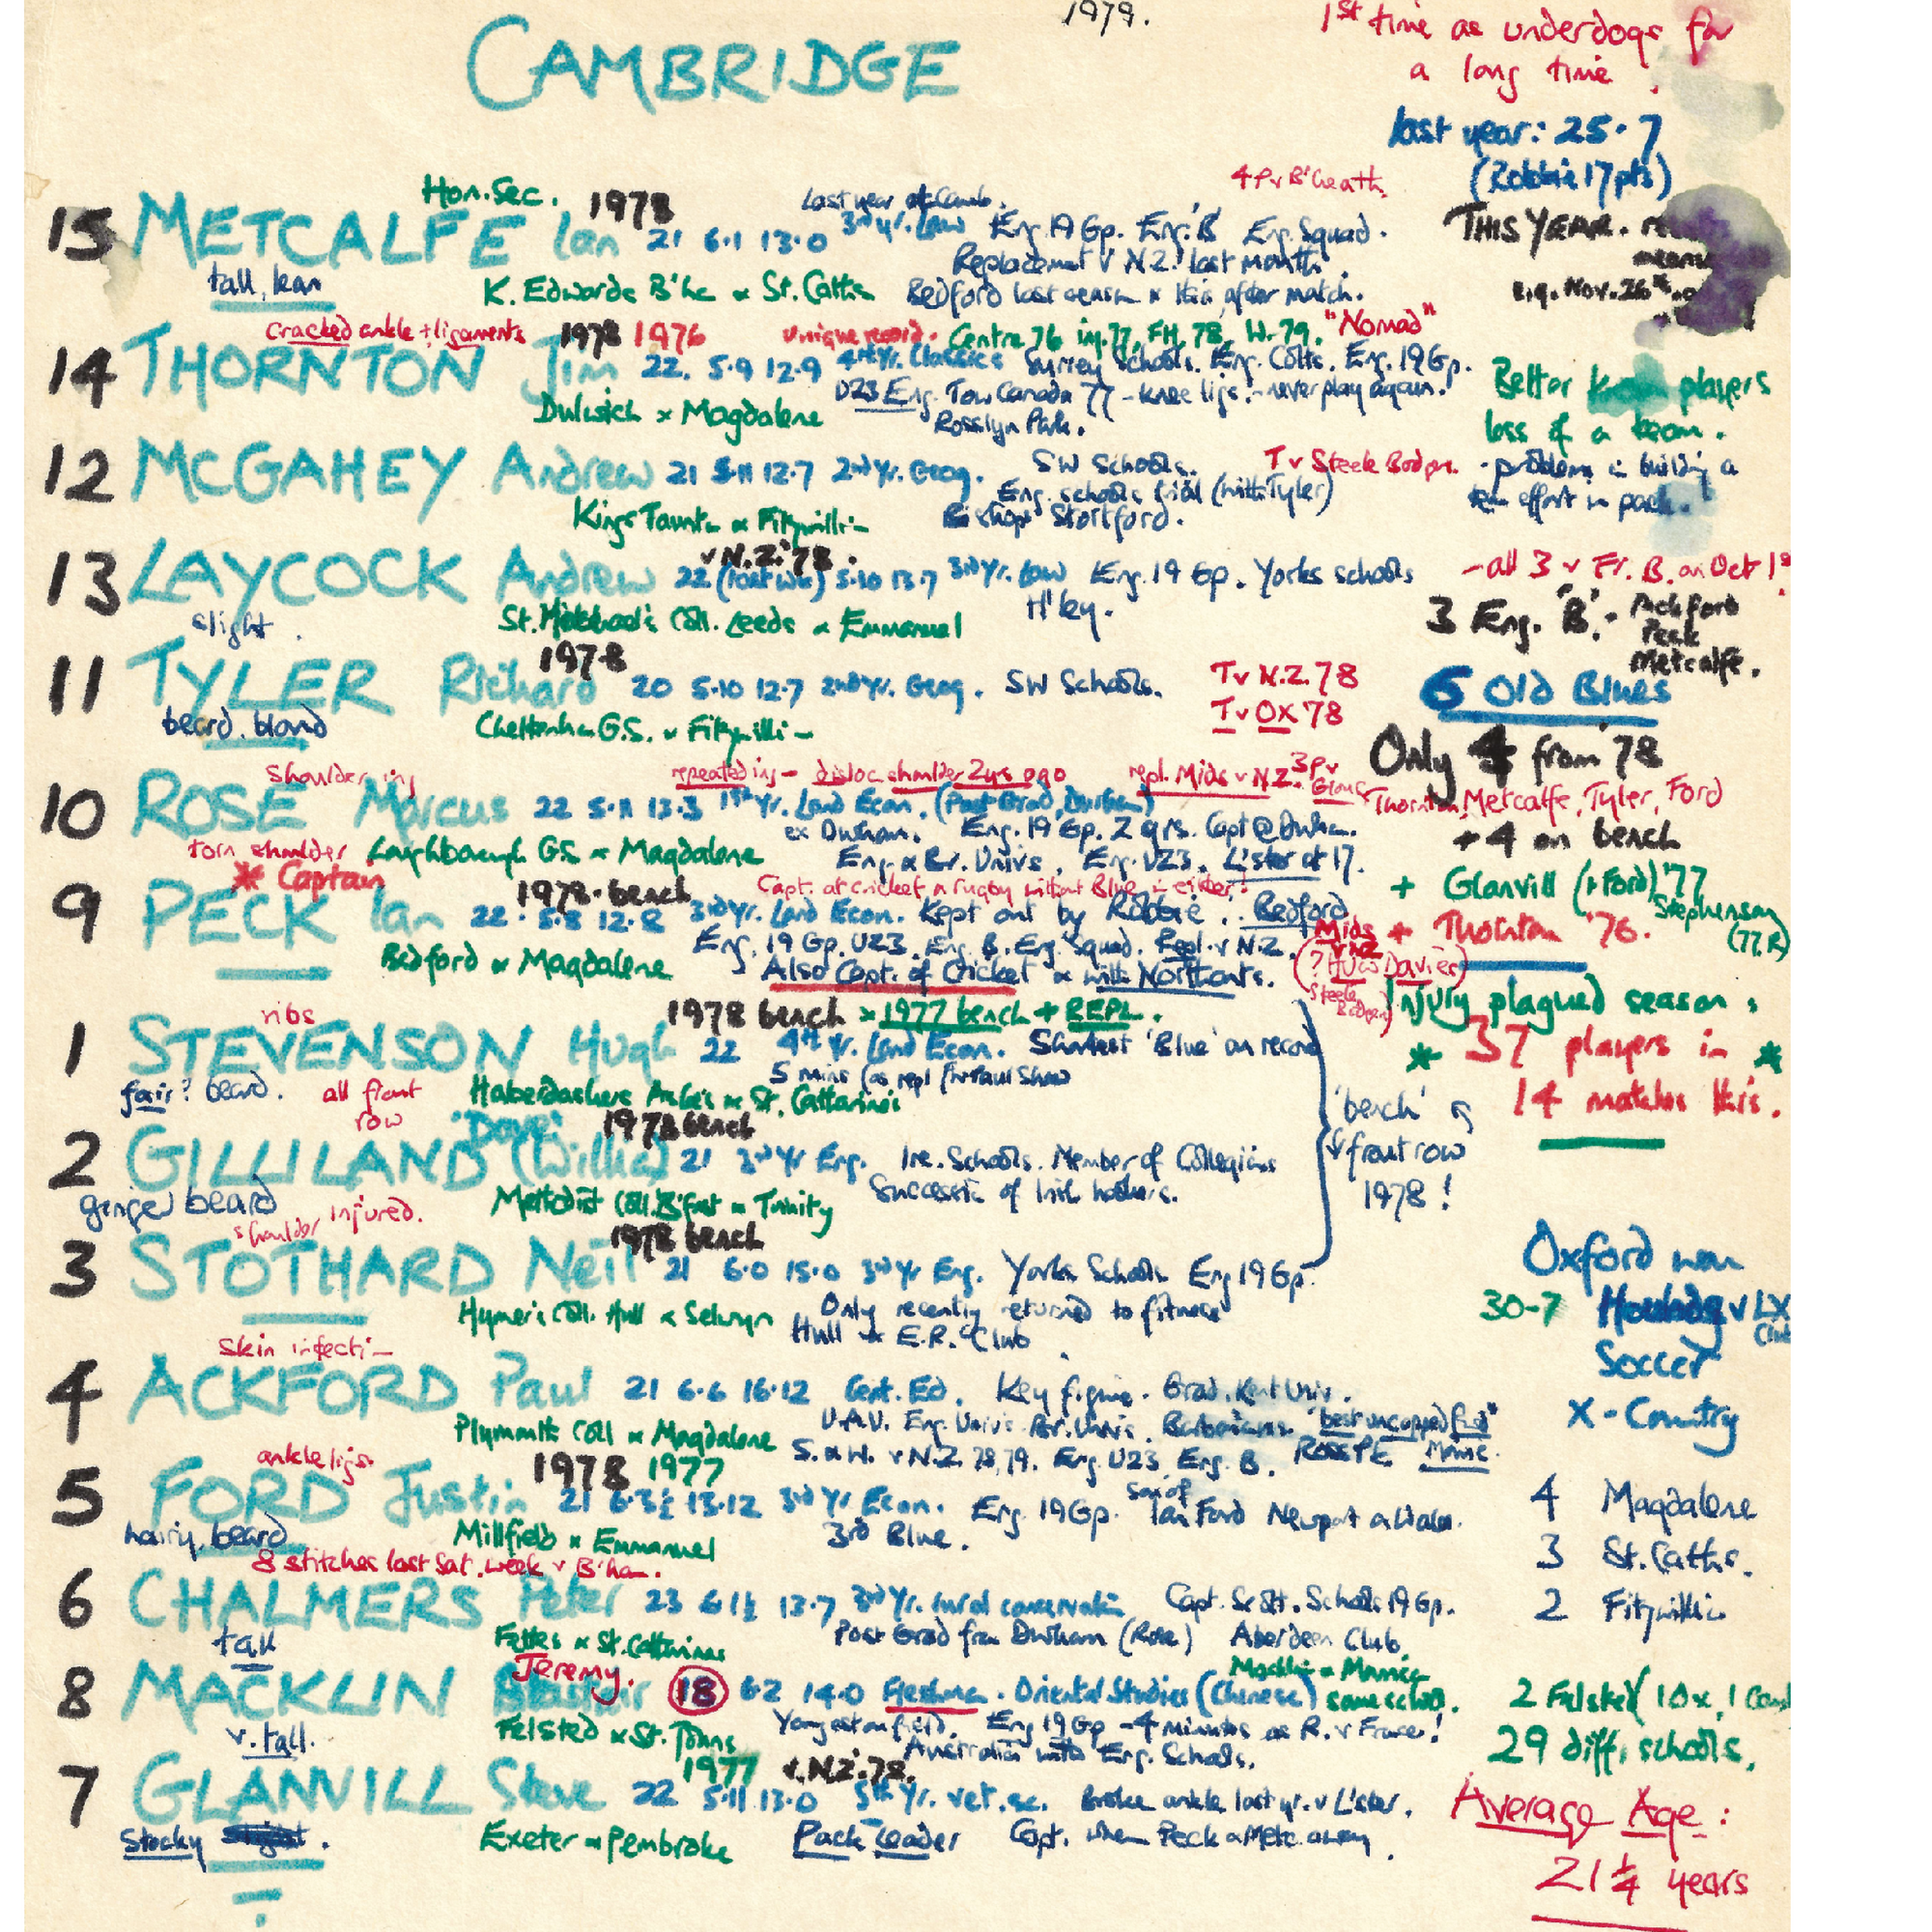 1979.
CAMBRIDGE
1st time as underdogs for
a long time
last year: 25-7
(Robbie 17 pts)
THIS YEAR.
e.g. Nov. 26th
Hon. Sec. 1978 last year at Camb. 4P v B'heath
15 METCALFE Ian 21 6.1 13.0 3rd yr. Law Eng. 19 Gp. Eng. 'B' Eng. Squad.
Replacement v N.Z. last month.
tall, lean K. Edwards B'h x St. Caths Bedford last season x this after match.
cracked ankle + ligaments 1978 1976 unique record. Centre 76 inj. 77, FH. 78, W. 79. "Nomad"
14 THORNTON Jim 22. 5.9 12.9 4th Yr. Classics Surrey Schools. Eng. Colts. Eng. 19 Gp.
U23 Eng. Tour Canada 77 - knee ligs. - never play again!
Dulwich x Magdalene Rosslyn Park.
Better players
loss of a team.
- problem in building a
effort in pack.
12 McGAHEY Andrew 21 5.11 12.7 2nd Yr. Geog. SW Schools. T v Steele Bodger.
Eng. schools trial (with Tyler)
Kings Taunton x Fitzwilli- Bishops Stortford.
v N.Z. '78.
13 LAYCOCK Andrew 22 (last wk) 5.10 13.7 3rd Yr. Law Eng. 19 Gp. Yorks schools
slight. St. Michael's Coll. Leeds x Emmanuel H'ley.
- all 3 v Fr. B. on Oct 1st
3 Eng. 'B'. - Ackford
Peck
Metcalfe.
1978
11 TYLER Richard 20 5.10 12.7 2nd Yr. Geog. SW Schools. T v N.Z. 78
T v OX 78
beard. blond Cheltenham G.S. x Fitzwilli-
6 Old Blues
Only 4 from '78
Thornton, Metcalfe, Tyler, Ford
+ 4 on bench
+ Glanvill (+ Ford) '77
Stephenson
(77 R)
+ Thornton '76.
shoulder inj repeated inj - disloc. shoulder 2 yrs ago repl. Mids v N.Z. 3P v Glouc
10 ROSE Marcus 22 5.11 13.3 1st Yr. Land Econ. (Post Grad, Durham)
ex Durham. Eng. 19 Gp. 2 yrs. Capt @ Durham.
torn shoulder Loughborough GS x Magdalene Eng x Br. Univs. Eng. U23. Leicester at 17.
* Captain 1978 - bench Capt. at cricket x rugby without Blue in either!
9 PECK Ian 22. 5.8 12.8 3rd Yr. Land Econ. Kept out by Robbie. Bedford
Eng. 19 Gp. U23. Eng. B. Eng. Squad. Repl. v N.Z. Mids v NZ
Bedford x Magdalene Also Capt. of Cricket x with Northants.
(? Huw Davies)
Steele Bodger)
Injury plagued season.
* 37 players in *
14 matches this.
ribs 1978 bench x 1977 bench + REPL.
1 STEVENSON Hugh 22 4th Yr. Land Econ. Shortest 'Blue' on record
5 mins (as repl for Paul Shaw
fair? beard. all front row Haberdashers Aske's x St. Catharine's
'bench'
front row
1978!
'Dave' 1978 bench
2 GILLILAND (Willie) 21 3rd Yr Eng. Ire. Schools. Member of Collegians
Succession of Irish hookers.
ginger beard Methodist Coll. B'fast x Trinity
shoulder injured. 1978 bench
3 STOTHARD Neil 21 6.0 15.0 3rd Yr Eng. Yorks Schools Eng 19 Gp.
Hymers Coll. Hull x Selwyn Only recently returned to fitness
Hull x E.R. Club
Oxford won
30-7 v LX
Club
Soccer
X-Country
Skin infecti-
4 ACKFORD Paul 21 6.6 16.12 Cert. Ed. Key figure. Grad. Kent Univ.
U.A.U. Eng. Univs. Br. Univs. Barbarians. "best uncapped "
Plymouth Coll x Magdalene S. x W. v N.Z. 78, 79. Eng. U23. Eng. B. Ross Pk
ankle ligs. 1978 1977
5 FORD Justin 21 6.3½ 13.12 3rd Yr Econ. Eng 19 Gp. Son of Ian Ford Newport x Wales.
hairy, beard Millfield x Emmanuel 3rd Blue.
4 Magdalene
3 St. Caths.
2 Fitzwilli-
8 stitches last Sat. week v B'ham.
6 CHALMERS Peter 23 6.1½ 13.7 3rd Yr. Land conservation Capt. Scott. Schools 19 Gp.
tall Fettes x St. Catharines Post Grad from Durham (Rose) Aberdeen Club
Jeremy.
8 MACKLIN 18 6.2 14.0 Freshman. Oriental Studies (Chinese) same school.
v. tall. Felsted x St. Johns Youngest on field. Eng 19 Gp - 4 minutes as R. v France!
Australia with Eng. Schools.
2 Felsted (1 Ox, 1 Camb
29 diff. schools.
1977 v. N.Z. 78.
7 GLANVILL Steve 22 5.11 13.0 5th Yr. vet. sc. Broke ankle last yr. v L'ster.
Stocky Exeter x Pembroke Pack Leader Capt. when Peck x Metc. away
Average Age:
21¼ years